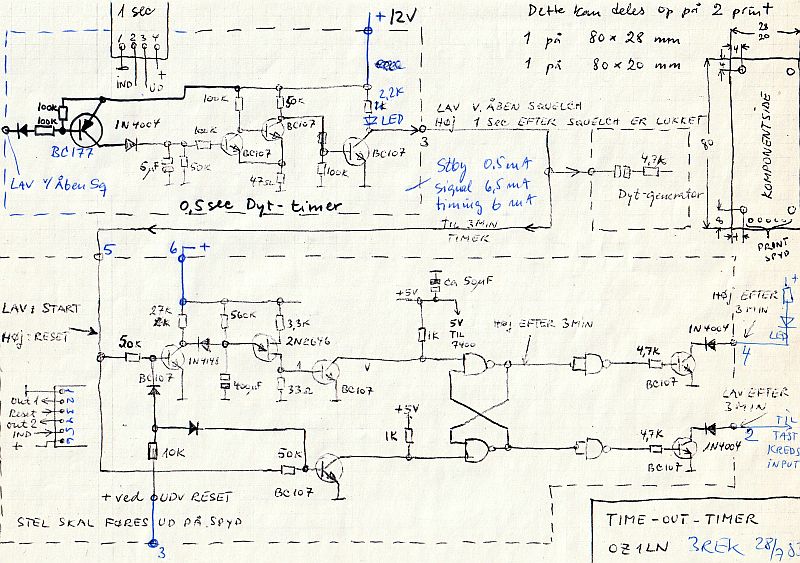 1 sec
1 2 3 4
IND
UD
+
+ 12V
Dette kan deles op på 2 print
1 på 80 x 28 mm
1 på 80 x 20 mm
28
20
4
80
KOMPONENTSIDE
8
PRINT
SPYD
100K
100K
BC177
1N4004
6µF
50K
100K
100K
BC107
50K
BC107
47Ω
100K
2,2K
LED
BC107
3
LAV V. ÅBEN SQUELCH
HØJ 1 SEC EFTER SQUELCH ER LUKKET
LAV V/ Åben Sq
0,5 sec Dyt-timer
Stby 0,5 mA
signal 6,5 mA
timing 6 mA
4,7K
Dyt-Generator
TIL 3MIN
TIMER
5
6 +
LAV: START
HØJ: RESET
27K
50K
BC107
1N4148
56oK
400µF
3,3K
2N2646
33Ω
BC107
+5V
ca 50µF
1K
5V
TIL
7400
HØJ EFTER 3MIN
4,7K
BC107
1N4004
HØJ EFTER
3MIN
+
LED
4
1
2
3
4
5
6
out 1
Reset
out 2
IND
+
10K
50K
BC107
+5V
1K
4,7K
BC107
1N4004
LAV EFTER
3MIN
2
TIL
TAST
KREDS
INPUT
+ ved UDV RESET
STEL SKAL FØRES UD PÅ SPYD
3
TIME-OUT-TIMER
OZ1LN 3REK 28/7 83